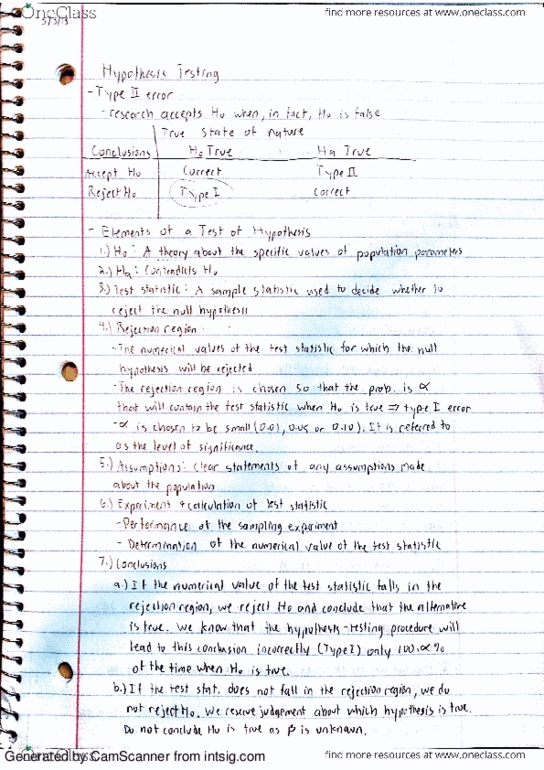 OneClass
find more resources at www.oneclass.com
Hypothesis Testing
- Type II error
- research accepts Ho when, in fact, Ho is false
True State of nature
Conclusions Ho True Ha True
Accept Ho Correct Type II
Reject Ho Type I Correct
- Elements of a Test of Hypothesis
1.) Ho: A theory about the specific values of population parameters
2.) Ha: Contradicts Ho
3.) Test statistic: A sample statistic used to decide whether to
reject the null hypothesis
4.) Rejection region
- The numerical values of the test statistic for which the null
hypothesis will be rejected
- The rejection region is chosen so that the prob. is α
that will contain the test statistic when Ho is true ⇒ type I error
- α is chosen to be small (0.01, 0.05 or 0.10). It is referred to
as the level of significance.
5.) Assumptions: clear statements of any assumptions made
about the population
6.) Experiment + calculation of test statistic
- Performance of the sampling experiment
- Determination of the numerical value of the test statistic
7.) Conclusions
a.) If the numerical value of the test statistic falls in the
rejection region, we reject Ho and conclude that the alternative
is true. We know that the hypothesis-testing procedure will
lead to this conclusion incorrectly (Type I) only 100·α%
of the time when Ho is true.
b.) If the test stat. does not fall in the rejection region, we do
not reject Ho. We reserve judgement about which hypothesis is true.
Do not conclude Ho is true as β is unknown.
Generated by CamScanner from intsig.com
find more resources at www.oneclass.com